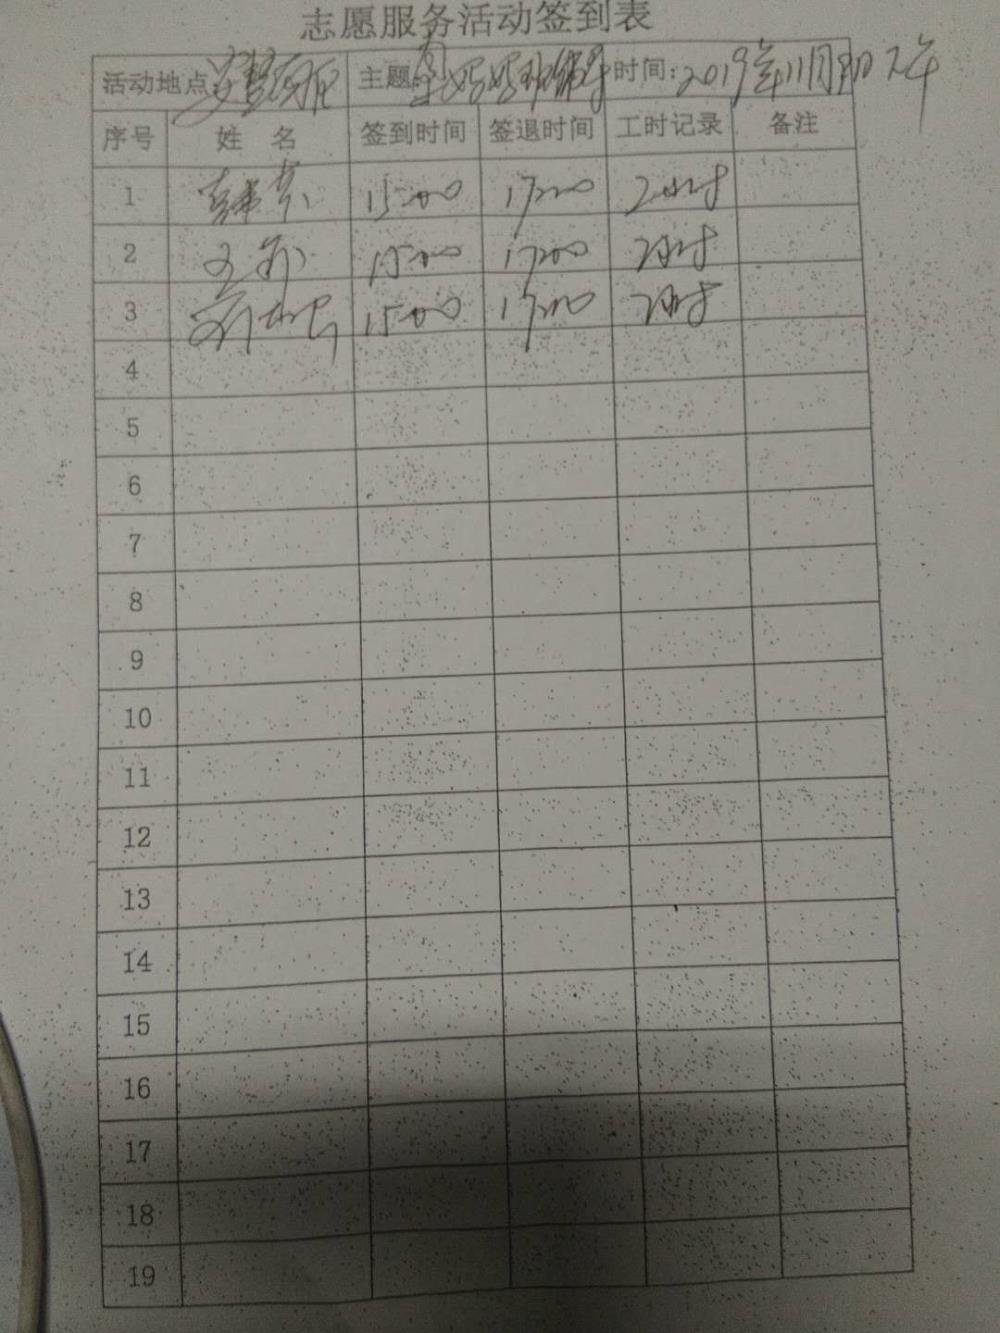 志愿服务活动签到表
活动地点 主题: 妈妈 辅导 时间: 2019年11月 日下午
序号 姓 名 签到时间 签退时间 工时记录 备注
1 15:00 17:00 2小时
2 王 15:00 17:00 2小时
3 15:00 17:00 2小时
4
5
6
7
8
9
10
11
12
13
14
15
16
17
18
19